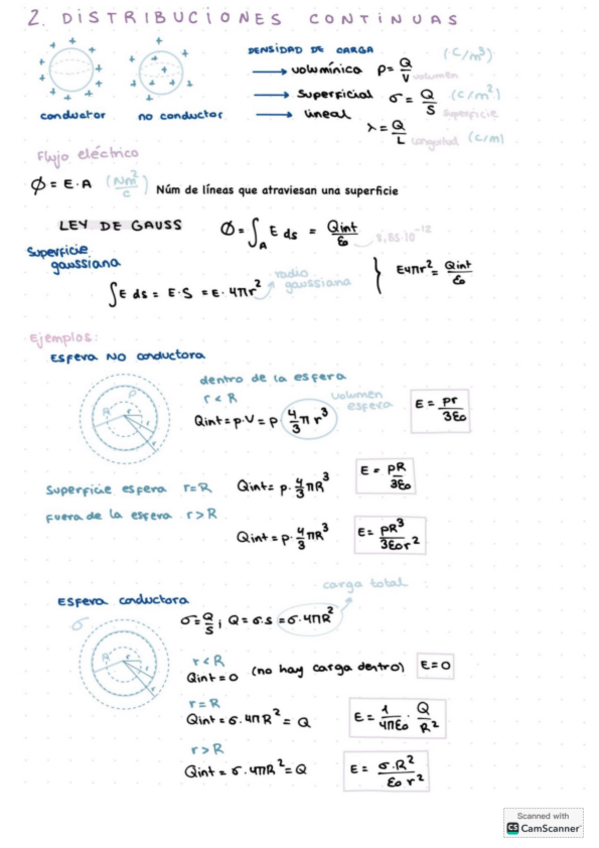 2. DISTRIBUCIONES CONTINUAS
+ + + + + + + + + +
conductor
no conductor
DENSIDAD DE CARGA
→ volumínica ρ = Q/V (C/m³) volumen
→ superficial σ = Q/S (C/m²) superficie
→ lineal λ = Q/L longitud (C/m)
Flujo eléctrico
Φ = E·A (Nm²/C) Núm de líneas que atraviesan una superficie
LEY DE GAUSS Φ = ∫A E ds = Qint/ε0 8,85·10⁻¹²
Superficie
gaussiana
∫E ds = E·S = E·4πr² radio gaussiana } E4πr² = Qint/ε0
Ejemplos:
ESFERA NO conductora
ρ
R r
dentro de la esfera
r < R
Qint = ρ·V = ρ (4/3 π r³) volumen esfera E = ρr/3ε0
Superficie esfera r=R Qint = ρ·4/3 πR³ E = ρR/3ε0
Fuera de la esfera r>R
Qint = ρ·4/3 πR³ E = ρR³/3ε0r²
carga total
ESFERA conductora
σ
R r
σ = Q/S ; Q = σ·S = σ·4πR²
r<R
Qint = 0 (no hay carga dentro) E=0
r=R
Qint = σ·4πR² = Q E = 1/4πε0 · Q/R²
r>R
Qint = σ·4πR² = Q E = σ·R²/ε0 r²
Scanned with
CS CamScanner